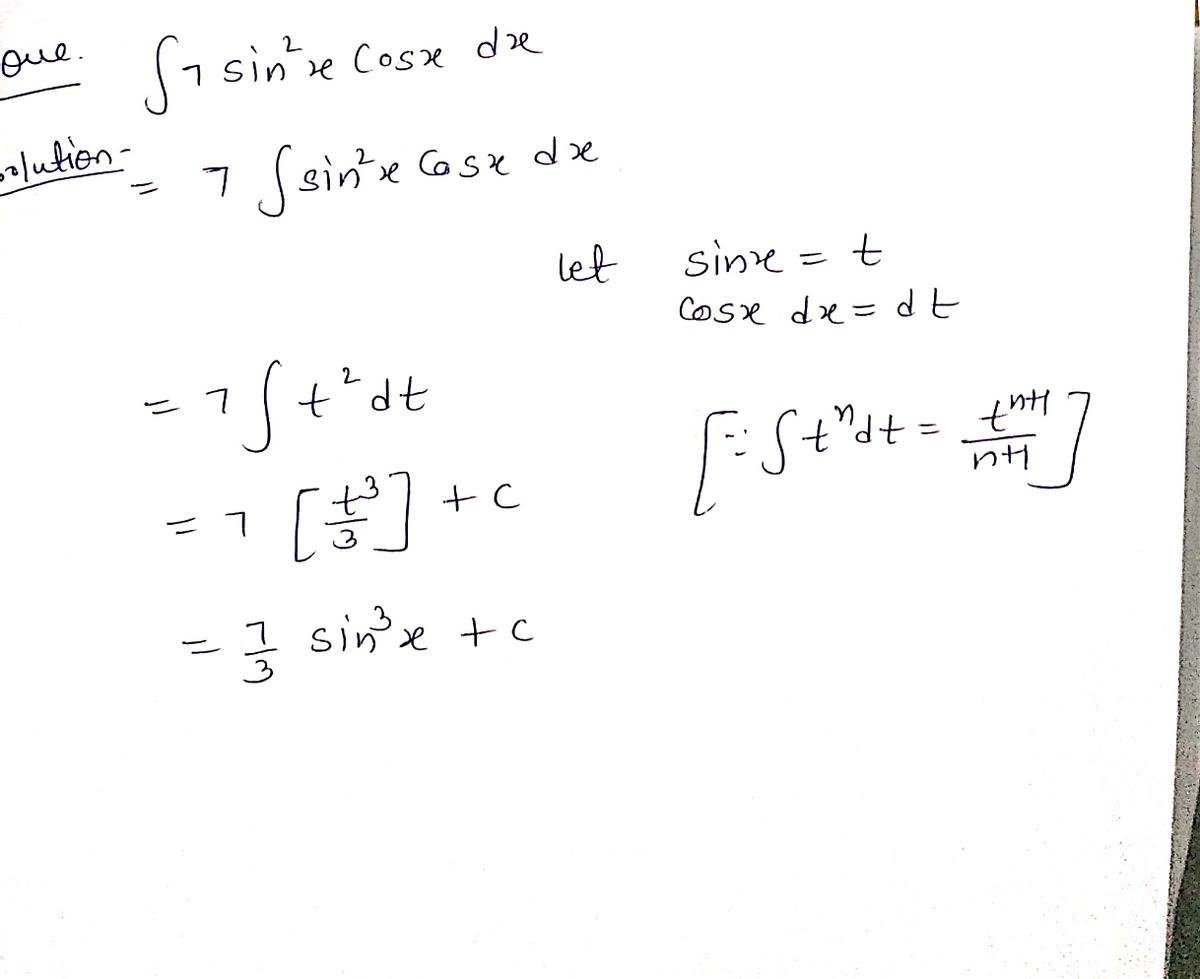 Que. ∫7 sin²x Cosx dx
solution- = 7 ∫sin²x Cosx dx
let sinx = t
Cosx dx = dt
= 7∫t²dt
[∵ ∫tⁿdt = tⁿ⁺¹/n+1]
= 7 [t³/3] + c
= 7/3 sin³x + c